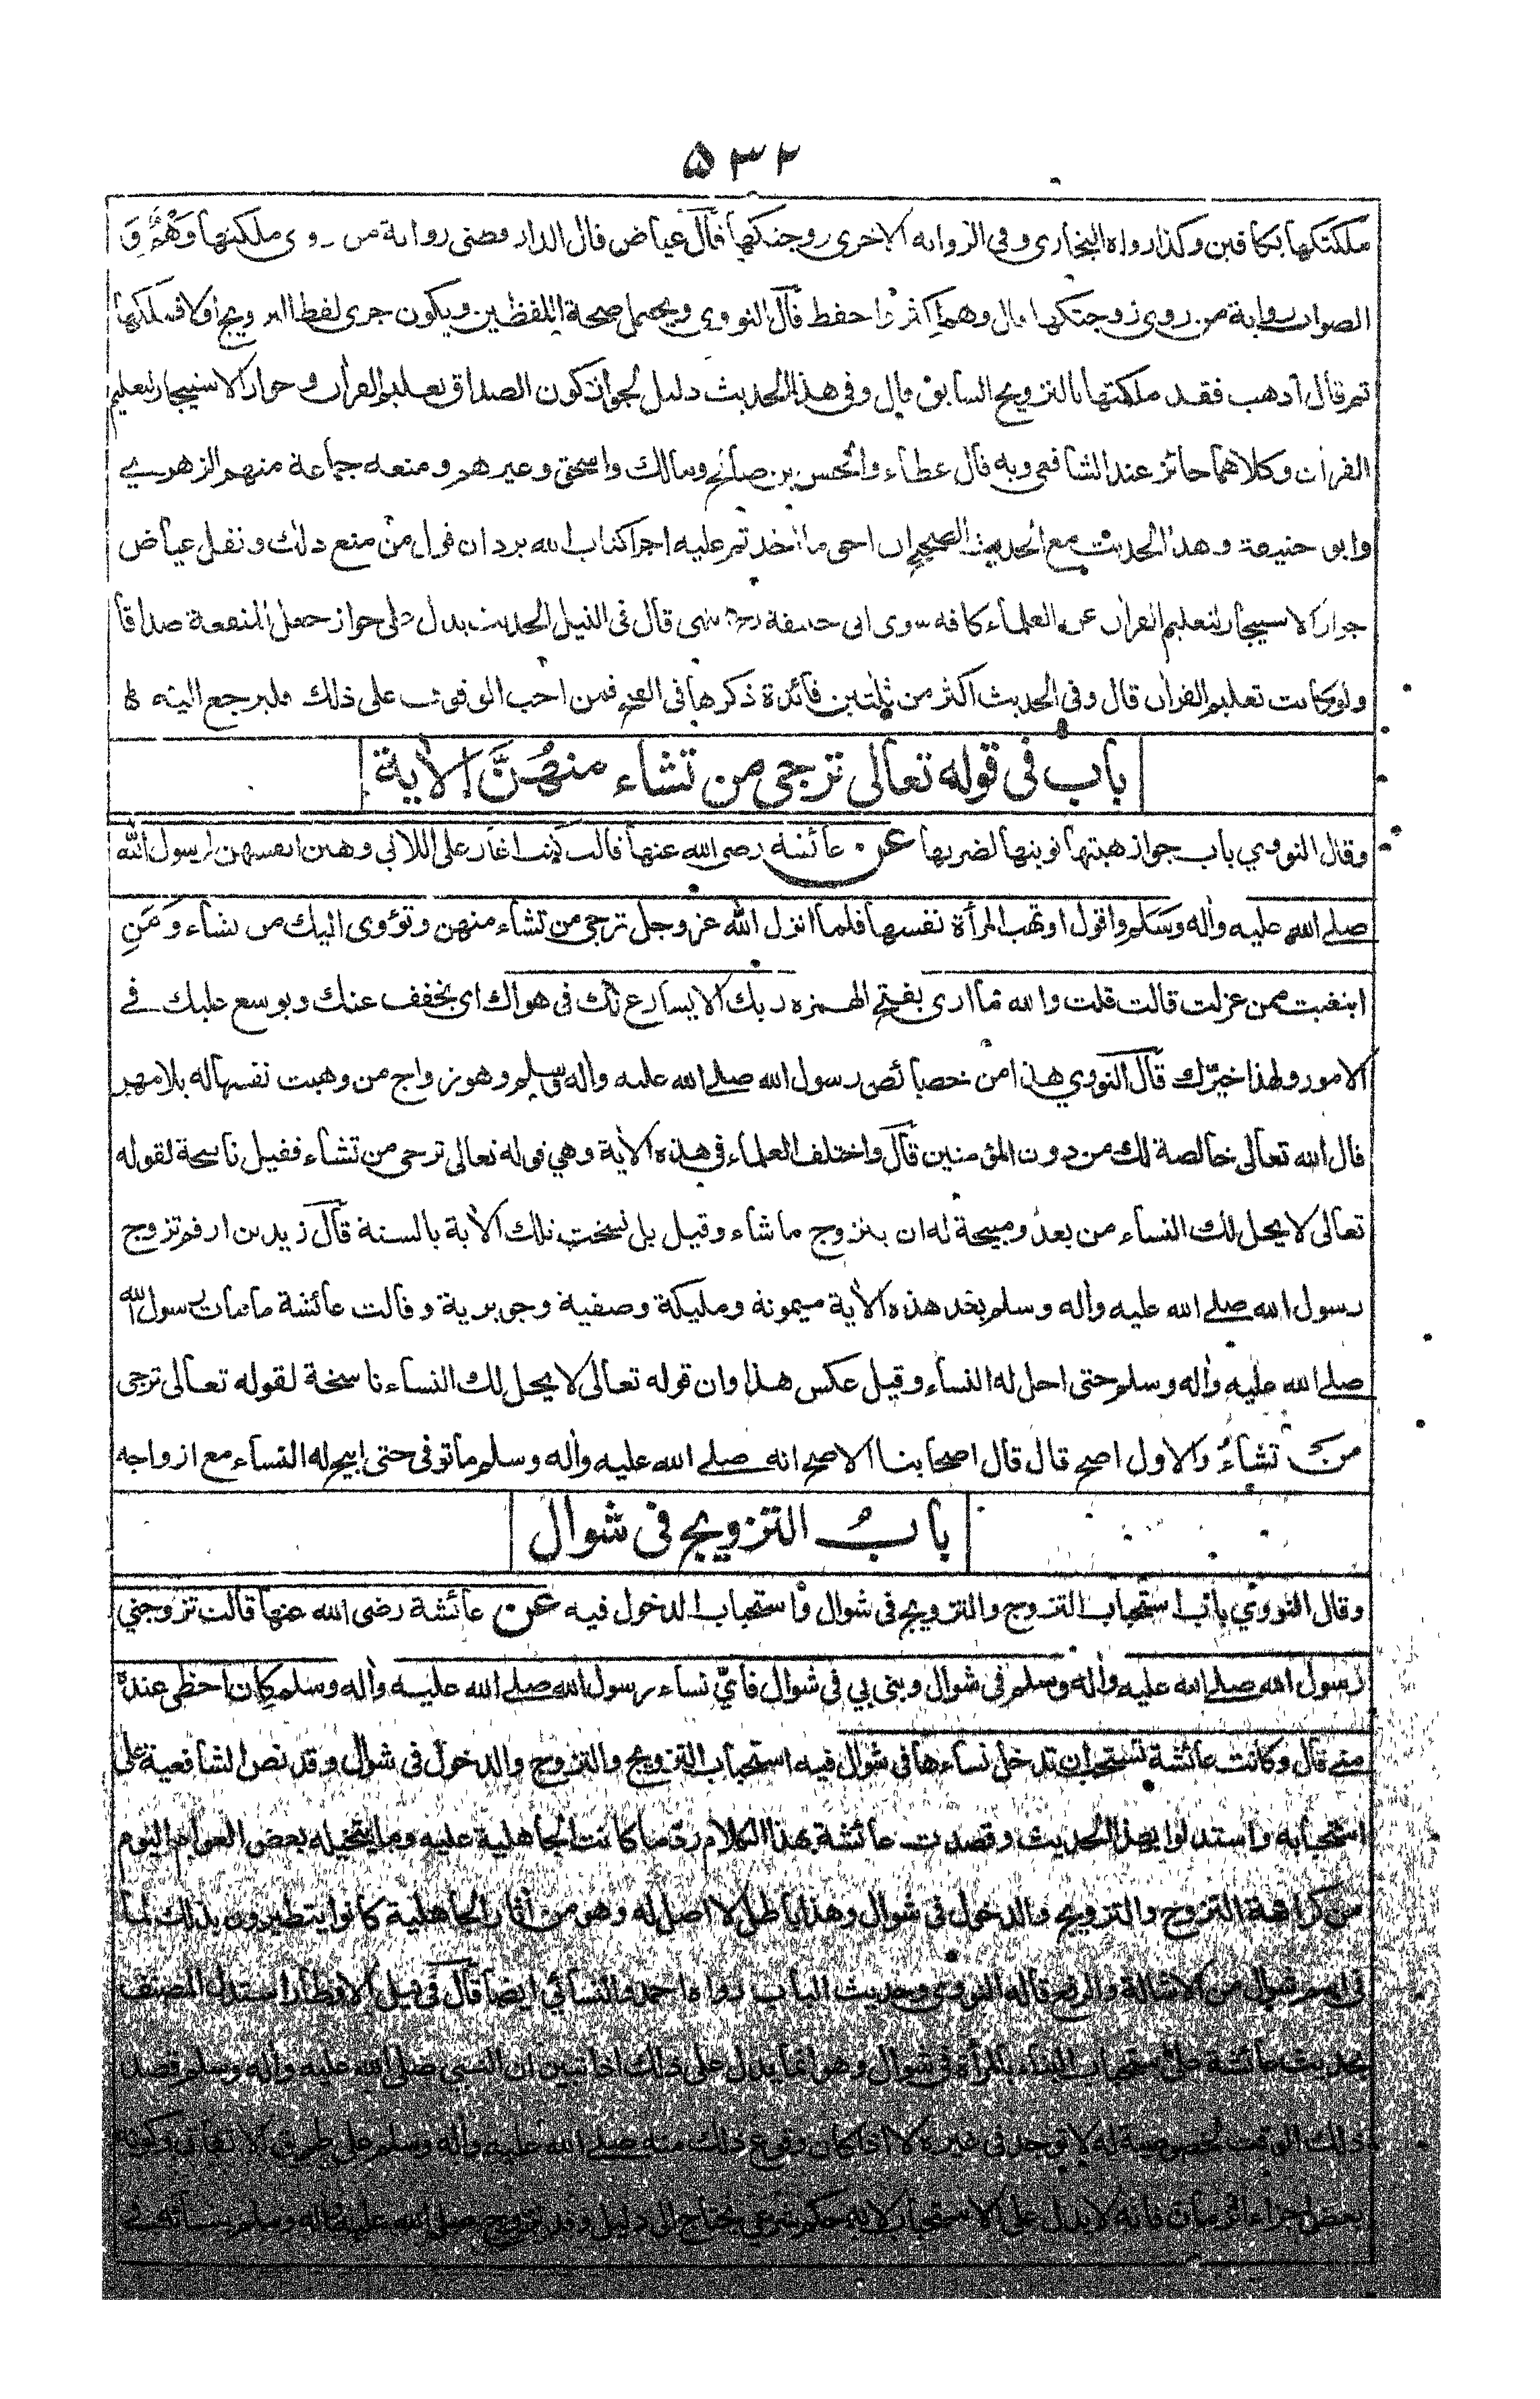 ۵۳۲
ملكتكها بكافين وكذا رواه البخاري وفي الرواية الاخرى زوجتكها قال عياض قال الدارقطني رواية من روى ملكتها وهم و
الصواب رواية من روى زوجتكها قال وهم اكثر واحفظ قال النووي ويحتمل صحة اللفظين ويكون جرى لفظ التزويج اولا فملكها
ثم قال اذهب فقد ملكتها بالتزويج السابق قال وفي هذا الحديث دليل لجواز كون الصداق تعليم القران وجواز الاستيجار لتعليم
القران وكلاهما جائز عند الشافعي وبه قال عطاء والحسن بن صالح ومالك واسحق وغيرهم ومنعه جماعة منهم الزهري
وابو حنيفة وهذا الحديث مع الحديث الصحيح ان احق ما اخذتم عليه اجرا كتاب الله يردان قول من منع ذلك ونقل عياض
جواز الاستيجار لتعليم القران عن العلماء كافة سوى ابي حنيفة انتهى قال في النيل الحديث يدل على جواز جعل المنفعة صداقا
ولو كانت تعليم القران قال وفي الحديث اكثر من ثلثين فائدة ذكرها في الفتح فمن احب الوقوف على ذلك فليرجع اليه
باب في قوله تعالى ترجي من تشاء منهن الأية
وقال النووي باب جواز هبتها نوبتها لضرتها عن عائشة رضى الله عنها قالت كنت اغار على اللاتي وهبن انفسهن لرسول الله
صلے الله عليه وأله وسلم واقول اوتهب المرأة نفسها فلما انزل الله عز وجل ترجي من تشاء منهن وتؤوى اليك من تشاء ومن
ابتغيت ممن عزلت قالت قلت والله ما ارى بفتح الهمزه ربك الا يسارع لك في هواك اى يخفف عنك ويوسع عليك في
الامور ولهذا خيرك قال النووي هذا من خصائص رسول الله صلے الله عليه وأله وسلم وهو زواج من وهبت نفسها له بلا مهر
قال الله تعالى خالصة لك من دون المؤمنين قال واختلف العلماء في هذه الأية وهي قوله تعالى ترجي من تشاء فقيل ناسخة لقوله
تعالى لا يحل لك النساء من بعد ومبيحة له ان يتزوج ما شاء وقيل بل نسخت تلك الأية بالسنة قال زيد بن ارقم تزوج
رسول الله صلے الله عليه وأله وسلم بعد هذه الأية ميمونة ومليكة وصفية وجويرية وقالت عائشة ما مات رسول الله
صلے الله عليه وأله وسلم حتى احل له النساء وقيل عكس هذا وان قوله تعالى لا يحل لك النساء ناسخة لقوله تعالى ترجي
من تشاء والاول اصح قال قال اصحابنا الاصح انه صلے الله عليه وأله وسلم ما توفى حتى ابيح له النساء مع ازواجه
باب التزويج في شوال
وقال النووي باب استحباب التزوج والتزويج في شوال واستحباب الدخول فيه عن عائشة رضى الله عنها قالت تزوجني
رسول الله صلے الله عليه وأله وسلم في شوال وبنى بي في شوال فاي نساء رسول الله صلے الله عليه وأله وسلم كان احظى عنده
منے قال وكانت عائشة تستحب ان تدخل نساءها في شوال فيه استحباب التزويج والتزوج والدخول في شوال وقد نص الشافعية على
استحبابه واستدلوا بهذا الحديث وقصدت عائشة بهذا الكلام رد ما كانت الجاهلية عليه وما يتخيله بعض العوام اليوم
من كراهة التزوج والتزويج والدخول في شوال وهذا باطل لا اصل له وهو من أثار الجاهلية كانوا يتطيرون بذلك لما
في اسم شوال من الاشالة والرفع قاله النووي وحديث الباب رواه احمد والنسائي ايضا قال في نيل الاوطار استدل المصنف
بحديث عائشة على استحباب البناء بالمرأة في شوال وهو انما يدل على ذلك اذا تبين ان النبي صلے الله عليه وأله وسلم قصد
ذلك الوقت لخصوصية له لا توجد في غيره لا اذا كان وقوع ذلك منه صلے الله عليه وأله وسلم على طريق الاتفاق وكونه
بعض اجزاء الزمان فانه لا يدل على الاستحباب لانه حكم شرعي يحتاج الى دليل وقد تزوج صلے الله عليه وأله وسلم بنسائه في